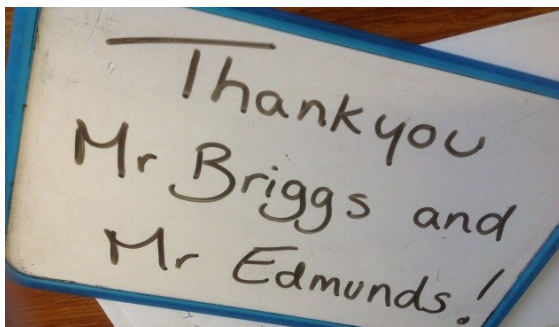 Thankyou
Mr Briggs and
Mr Edmunds!